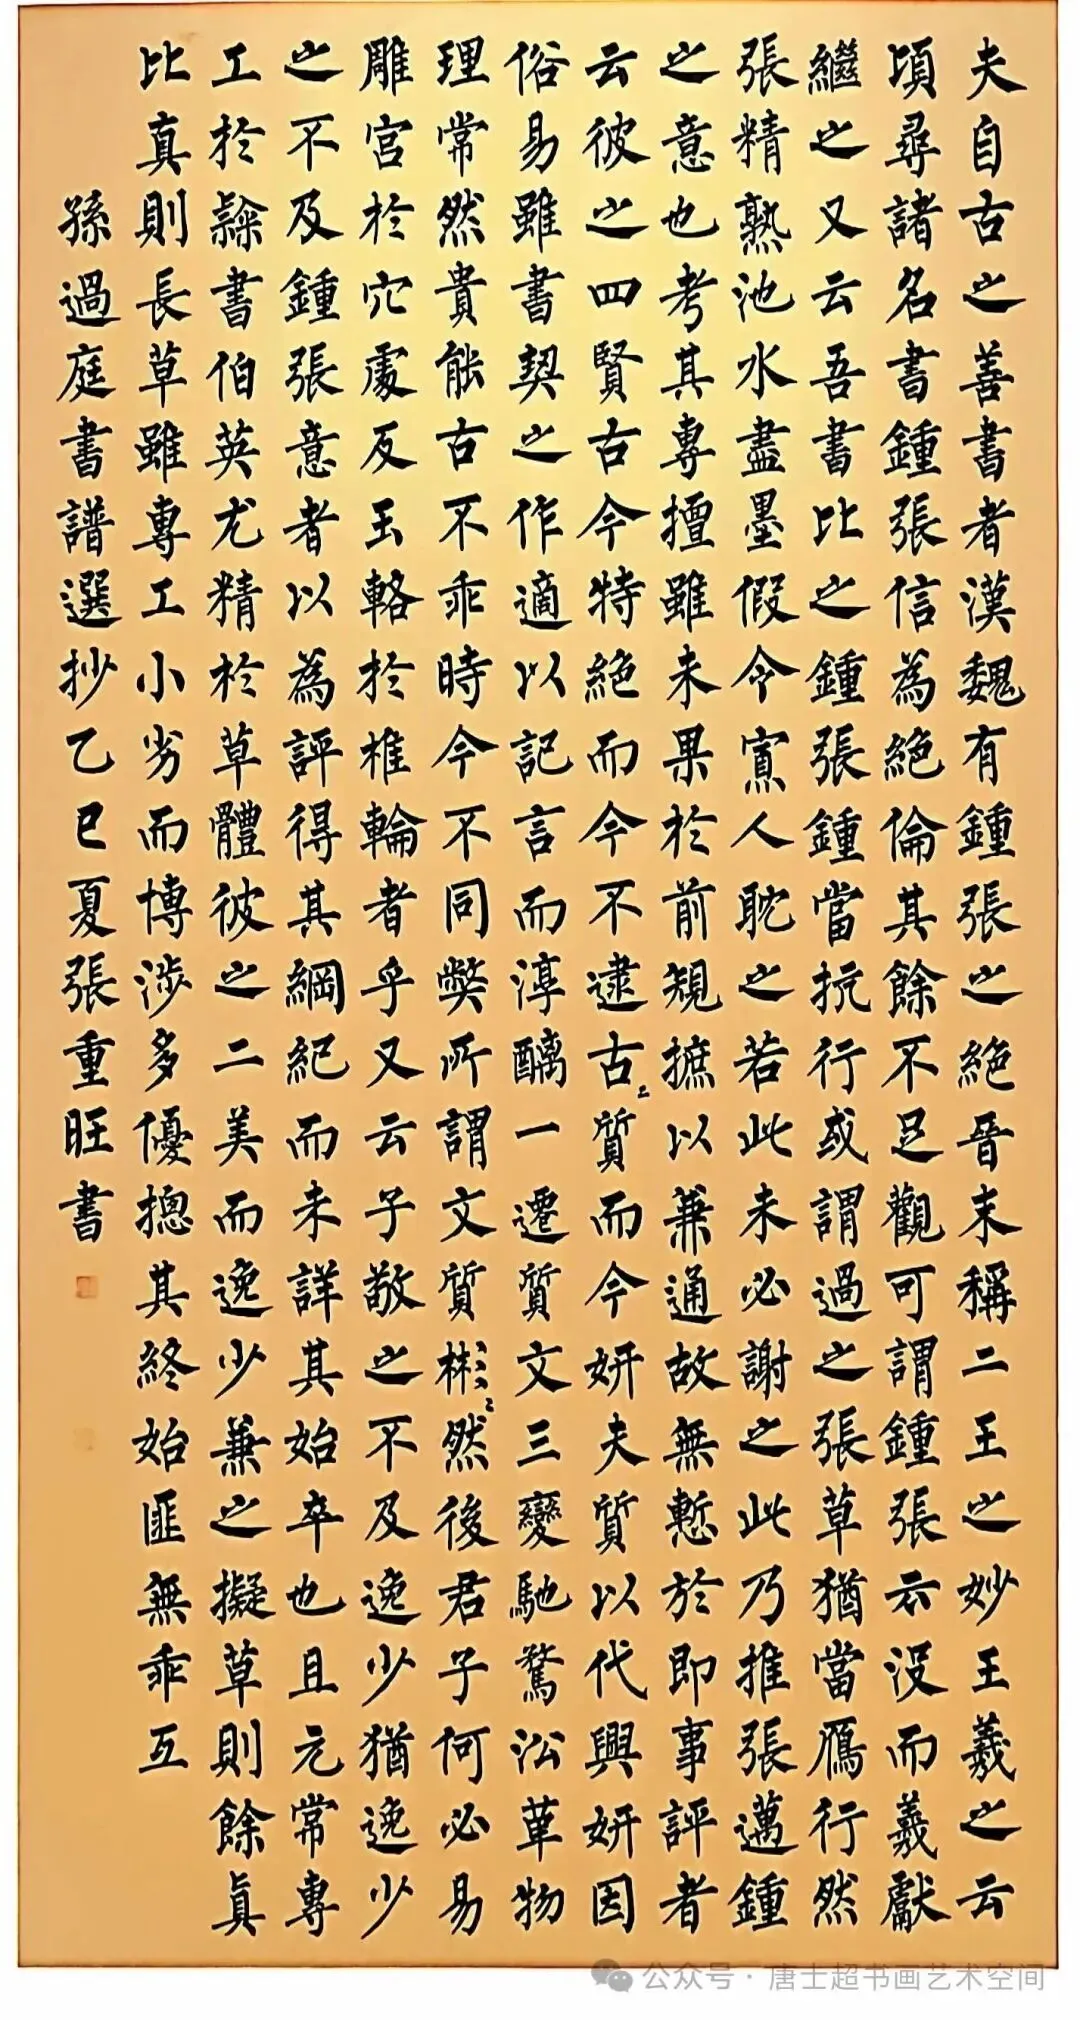 夫自古之善書者漢魏有鍾張之絕晉末稱二王之妙王羲之云
頃尋諸名書鍾張信為絕倫其餘不足觀可謂鍾張云沒而羲獻
繼之又云吾書比之鍾張鍾當抗行或謂過之張草猶當鴈行然
張精熟池水盡墨假令寡人耽之若此未必謝之此乃推張邁鍾
之意也考其專擅雖未果於前規摭以兼通故無慙於即事評者
云彼之四賢古今特絕而今不逮古〻質而今妍夫質以代興妍因
俗易雖書契之作適以記言而淳醨一遷質文三變馳鶩沿革物
理常然貴能古不乖時今不同弊所謂文質彬〻然後君子何必易
雕宮於穴處反玉輅於椎輪者乎又云子敬之不及逸少猶逸少
之不及鍾張意者以為評得其綱紀而未詳其始卒也且元常專
工於隸書伯英尤精於草體彼之二美而逸少兼之擬草則餘真
比真則長草雖專工小劣而博涉多優摠其終始匪無乖互
孫過庭書譜選抄乙巳夏張重旺書
公众号·唐士超书画艺术空间